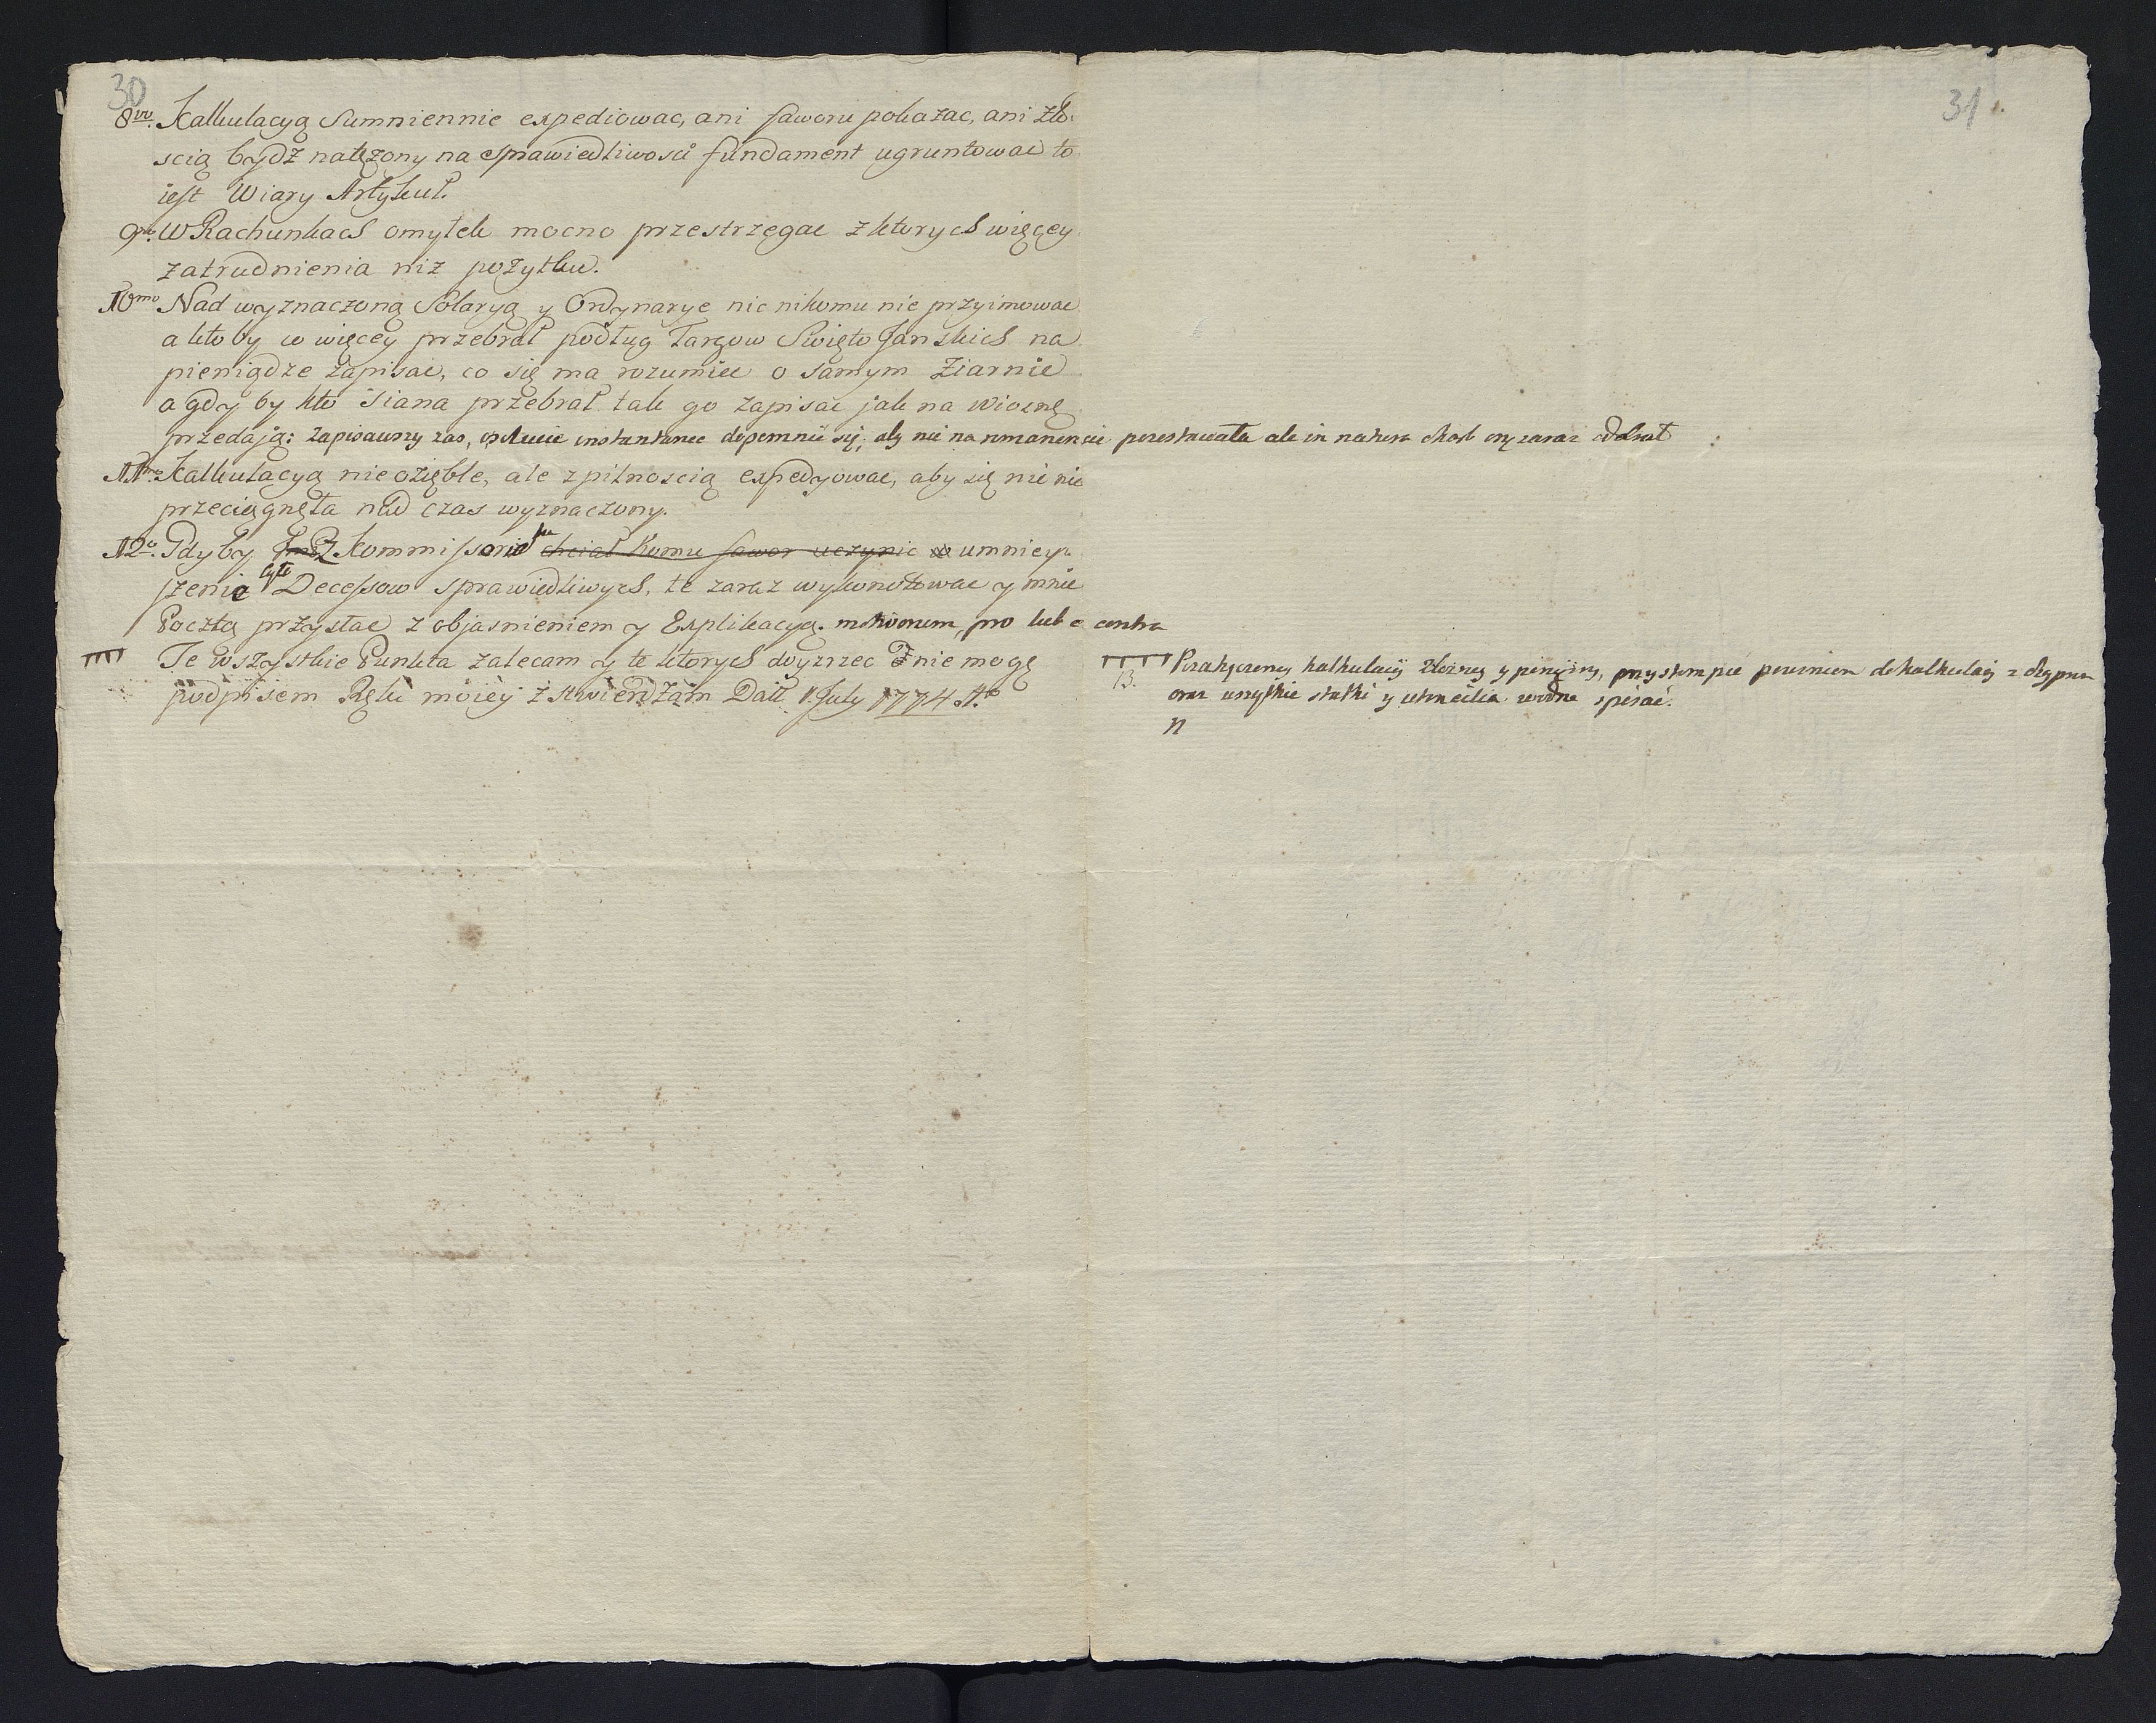 30
8vo. Kalkulacyą Sumniennie expediowac, ani faworu pokazac, ani zło-
scią bydz natęzony na sprawiedliwosci fundament ugruntowac to
iest Wiary Artykuł.
9no. W Rachunkach omyłek mocno przestrzegac z ktorych więcey
zatrudnienia niz pozytku.
10mo Nad wyznaczoną Solaryą y Ordynarye nic nikomu nie przyimowac
a kto by co więcey przebrał podług Targow Swięto Janskich na
pieniądze zapisac, co się ma rozumiec o samym Ziarnie
a gdy by kto Siana przebrał tak go zapisac jak na wiosnę
przedają: zapisawszy zas, instantanee dopomnic się, aby nie na remanencie pozostawała ale in natura zaraz odebrał :
11mo. Kalkulacyą nie ozięble, ale z pilnoscią expedyowac, aby się nic nie
przeciągnęła nad czas wyznaczony.
12o. Gdy by Kommissarie chciał Komu fawor uczynic umniey-
szenia Decessow sprawiedliwych, te zaraz wykonotowac y mnie
Pocztą przysłac z objasnieniem y Explikacyą. motivorum, pro lub e contra
Te wszystkie Punkta zalecam y te ktorych doyzrzec nie mogę
podpisem Ręki moiey ztwierdzam Datt 1. July 1774 Ao
31.
13. kalkulacij zbozney y pienięzney, przystompic powinien do kalkulacij z
oraz wszytkie statki y utensilia spisać.
n